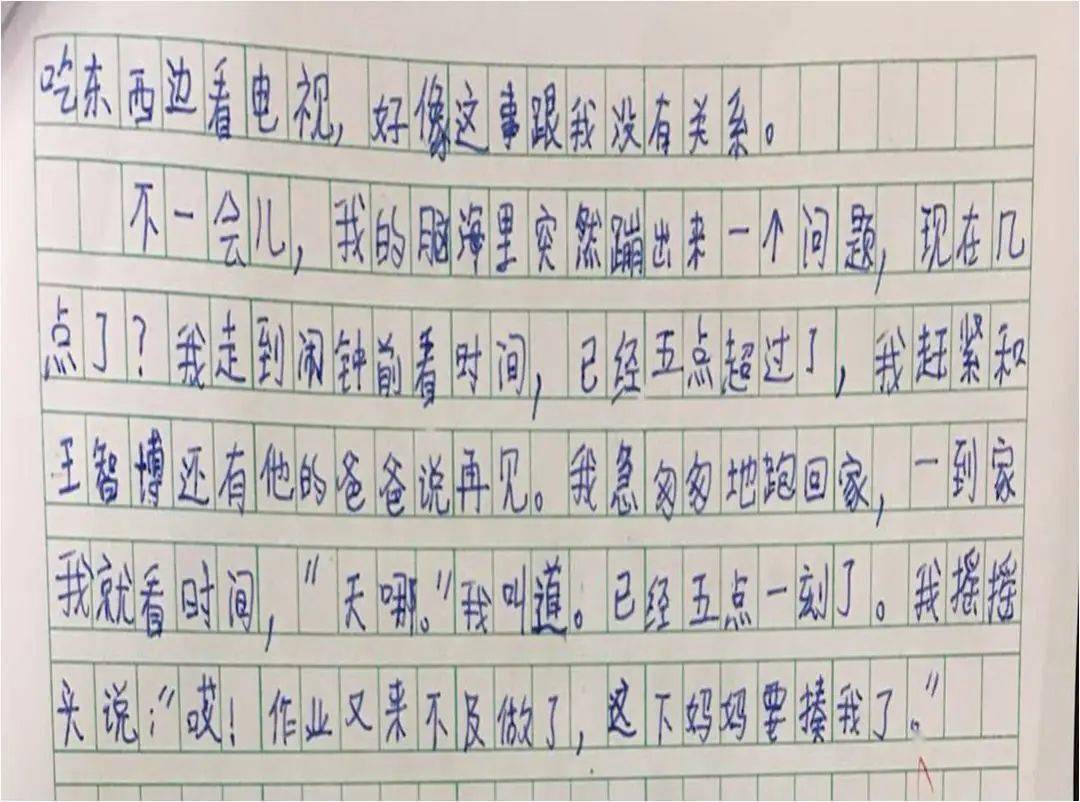 吃东西边看电视,好像这事跟我没有关系。
不一会儿,我的脑海里突然蹦出来一个问题,现在几
点了?我走到闹钟前看时间,已经五点超过了,我赶紧和
王智博还有他的爸爸说再见。我急匆匆地跑回家,一到家
我就看时间,“天哪。”我叫道。已经五点一刻了。我摇摇
头说:“哎!作业又来不及做了,这下妈妈要揍我了。”